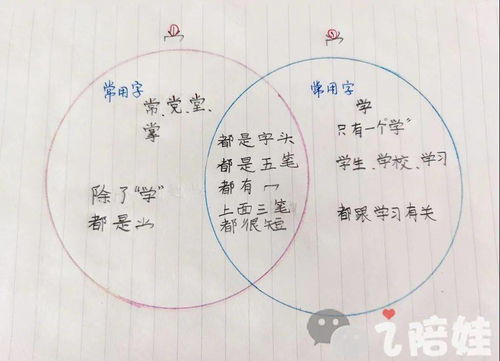 常用字
常、党、堂、
掌
除了"学"
都是⺌
都是字头
都是五笔
都有冖
上面三笔
都很短
常用字
学
只有一个"学"
学生、学校、学习
都跟学习有关
飞陪娃